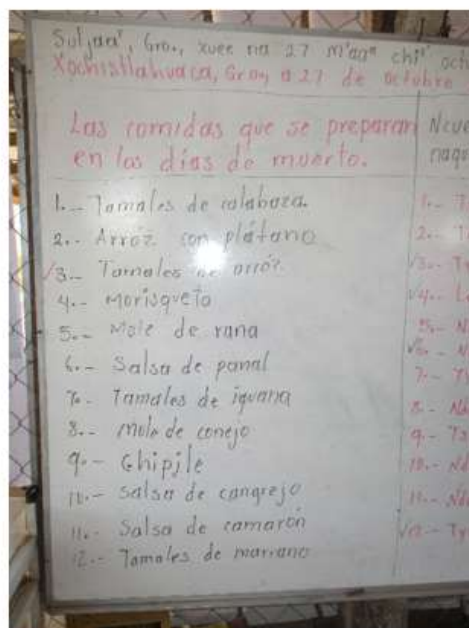 Suljaa', Gro., xuee na 27 m'aaⁿ chiⁿ' octu
Xochistlahuaca, Gro., a 27 de octubre
Las comidas que se preparan
en los días de muerto.
Ncue
naqu
1.- Tamales de calabaza.
2.- Arroz con plátano
3.- Tamales de arróz.
4.- Morisqueta
5.- Mole de rana
6.- Salsa de panal
7.- Tamales de iguana
8.- Mole de conejo
9.- Chipile
10.- Salsa de cangrejo
11.- Salsa de camarón
12.- Tamales de marrano
1.- T
2.- T
3.- T
4.- L
5.- N
6.- N
7.- Ty
8.- Na
9.- Ts
10.- Nd
11.- Nd
12.- Ty